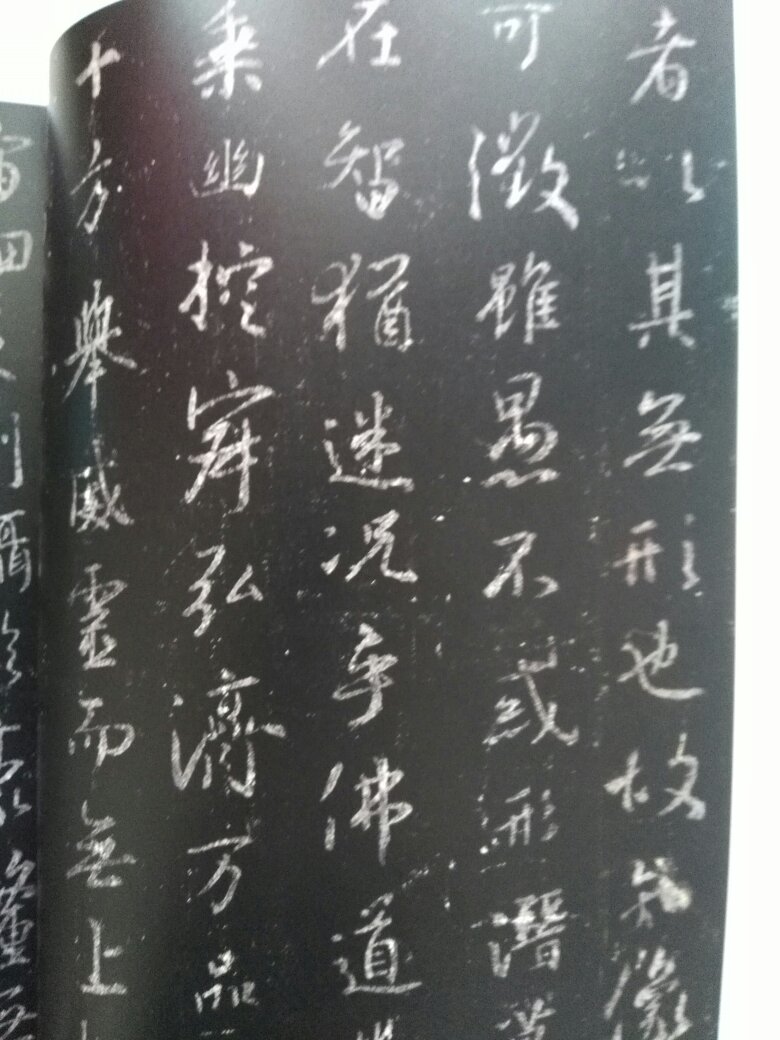 者以其無形也故知像
可徵雖愚不惑形潛莫
在智猶迷况乎佛道
乘幽控寂弘濟万品
十方舉威靈而無上